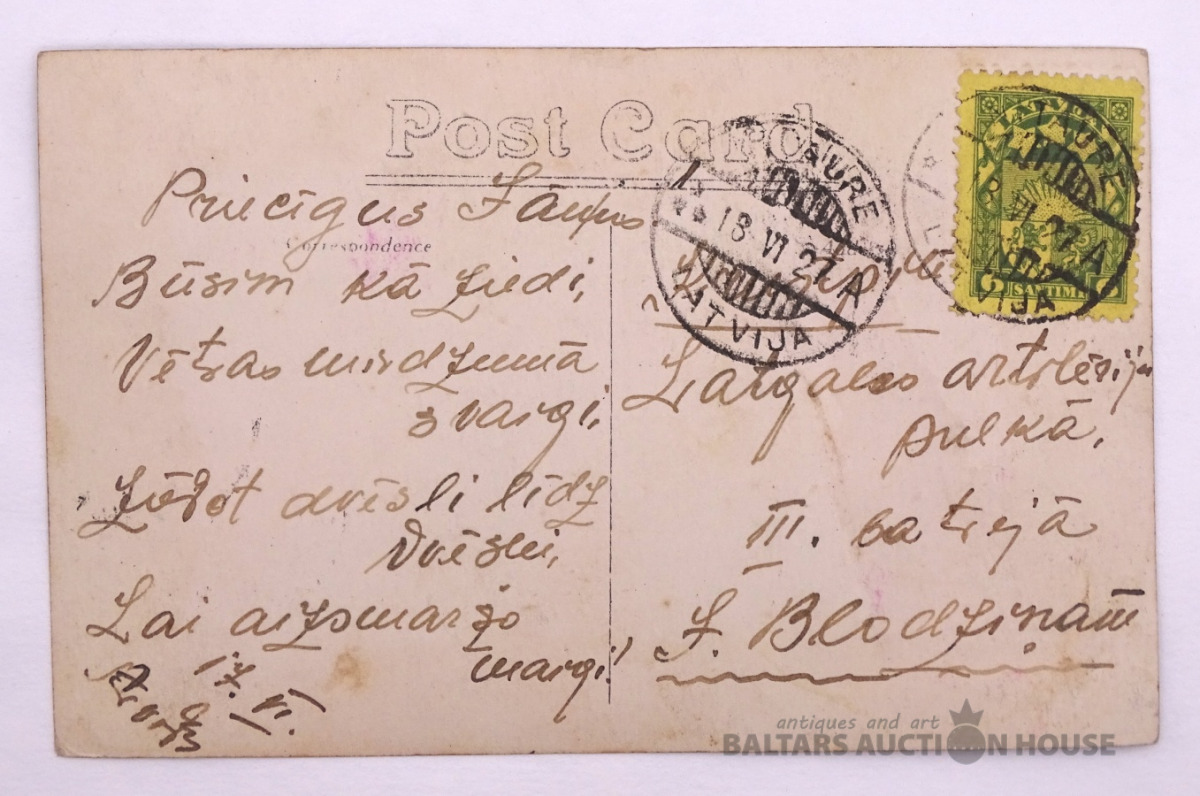 Post Card
Correspondence
Priecīgus Jāņus
Būsim kā ziedi,
Vētras mirdzumā
svaigi,
dvēsli līdz
dvēslei,
Lai aizsmaržo
maigi!
17. VI.
LATVIJA
6 SANTIMI 6
18 VI 27 A
LATVIJA
AURE
VI 27 A
LATVIJA
Latgales artilērijas
pulkā,
III. baterijā
J. Blodziņam
antiques and art
BALTARS AUCTION HOUSE